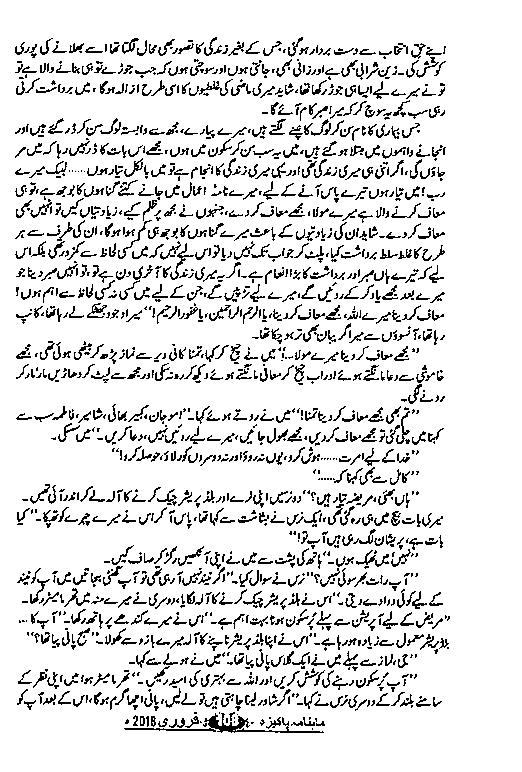 اپنے حق انتخاب سے دست بردار ہوگئی، جس کے بغیر زندگی کا تصور بھی محال لگتا تھا اسے بھلانے کی پوری
کوشش کی۔ زین شرابی بھی ہے اور زانی بھی، جانتی ہوں اور سوچتی ہوں کہ جب جوڑے تو ہی بنانے والا ہے تو
تو نے میرے لیے ایسا ہی جوڑ رکھا تھا، شاید میری ماضی کی غلطیوں کا اسی طرح ازالہ ہوگا، میں برداشت کرتی
رہی سب کچھ یہ سوچ کر کہ میرا صبر کام آئے گا۔
جس بیماری کا نام سن کر لوگ کانپنے لگتے ہیں، میرے پیارے، مجھ سے وابستہ لوگ سن کر ڈر گئے ہیں اور
انجانے واہموں میں مبتلا ہو گئے ہیں، میں یہ سب سن کر سکون میں ہوں، مجھے اس بات کا ڈر نہیں رہا کہ میں مر
جاؤں گی، اگر اتنی ہی میری زندگی تھی اور یہی میری زندگی کا انجام ہے تو میں بالکل تیار ہوں...... لبیک میرے
رب! میں تیار ہوں تیرے پاس آنے کے لیے، میرے نامہ اعمال میں جانے کتنے گناہوں کا بوجھ ہے، تو ہی
معاف کرنے والا ہے میرے مولا، مجھے معاف کر دے، جنہوں نے مجھ پر ظلم کیے، زیادتیاں کیں تو انہیں بھی
معاف کر دے۔ شاید ان کی زیادتیوں کے باعث میرے گناہوں کا بوجھ ہی کم ہوا ہوگا، ان کی طرف سے ہر
طرح کا غلط سلط برداشت کیا، پلٹ کر جواب تک نہیں دیا تو اس لیے نہیں کہ میں کسی لحاظ سے کمزور تھی بلکہ اس
لیے کہ تیرے ہاں صبر اور برداشت کا بڑا انعام ہے۔ اگر یہ میری زندگی کا آخری دن ہے تو، تو انہیں صبر دینا جو
میرے بعد مجھے یاد کر کے روئیں گے، میرے لیے تڑپیں گے، جن کے لیے میں کسی نہ کسی لحاظ سے اہم ہوں!
معاف کر دینا میرے اللہ، مجھے معاف کر دینا، یا ارحم الراحمین، یا غفور الرحیم!'' میرا وجود جھٹکے لے رہا تھا، کانپ
رہا تھا، آنسوؤں سے میرا گریبان بھی تر ہو چکا تھا۔
''مجھے معاف کر دینا میرے مولا...!'' میں نے چیخ کر کہا، تمنا کافی دیر سے نماز پڑھ کر بیٹھی ہوئی تھی، مجھے
خاموشی سے دعا مانگتے ہوئے اور اب چیخ کر معافی مانگتے ہوئے دیکھ کر رہ نہ سکی اور مجھ سے لپٹ کر دھاڑیں مار مار کر
رونے لگی۔
''تم بھی مجھے معاف کر دینا تمنا!'' میں نے روتے ہوئے کہا۔ ''اموجان، کبیر بھائی، شامیر، فاطمہ سب سے
کہنا میں چلی گئی تو مجھے معاف کر دیں، مجھے بھول جائیں، میرے لیے روئیں نہیں، دعا کریں۔'' میں سسکی۔
''خدا کے لیے امرت...... ہوش کرو، یوں نہ روؤ اور نہ دوسروں کو رلاؤ، حوصلہ کرو!''
''کامل سے بھی کہنا کہ......''
''ہاں بھئی، مریضہ تیار ہیں؟'' دو نرسیں اپنی ٹرے اور بلڈ پریشر چیک کرنے کا آلہ لے کر اندر آئی تھیں۔
میری بات بیچ میں ہی رہ گئی تھی، ایک نرس نے بشاشت سے کہا تھا، پاس آ کر اس نے میرے چہرے کو تھپکا۔ ''کیا
بات ہے، پریشان لگ رہی ہیں آپ تو!''
''نہیں! میں ٹھیک ہوں۔'' ہاتھ کی پشت سے میں نے اپنی آنکھیں رگڑ کر صاف کیں۔
''آپ رات بھر سوئی نہیں؟'' نرس نے سوال کیا۔ ''اگر نیند نہیں آ رہی تھی تو آپ گھنٹی بجاتیں میں آپ کو نیند
کے لیے کوئی دوا دے دیتی۔'' اس نے بلڈ پریشر چیک کرنے کا آلہ لگایا، دوسری نے میرے منہ میں تھرمامیٹر رکھا۔
''مریض کے لیے آپریشن سے پہلے پرسکون ہونا بہت اہم ہے۔'' اس نے میرے کندھے پر ہاتھ رکھا۔ ''آپ کا...
بلڈ پریشر معمول سے زیادہ ہو رہا ہے۔'' اس نے اپنا بلڈ پریشر ناپنے کا آلہ میرے بازو سے کھولا۔ ''صبح پانی پیا تھا؟''
''جی، نماز سے پہلے میں نے ایک گلاس پانی پیا تھا۔'' میں نے ہولے سے کہا۔
''آپ پرسکون رہنے کی کوشش کریں اور اللہ سے بہتری کی امید رکھیں۔'' تھرمامیٹر ہوا میں اپنی نظر کے
سامنے بلند کر کے دوسری نرس نے کہا۔ ''اگر شاور لینا چاہتی ہیں تو لے لیں، پانی اچھا گرم ہوگا، اس کے بعد آپ کو
ماہنامہ پاکیزہ فروری 2018ء